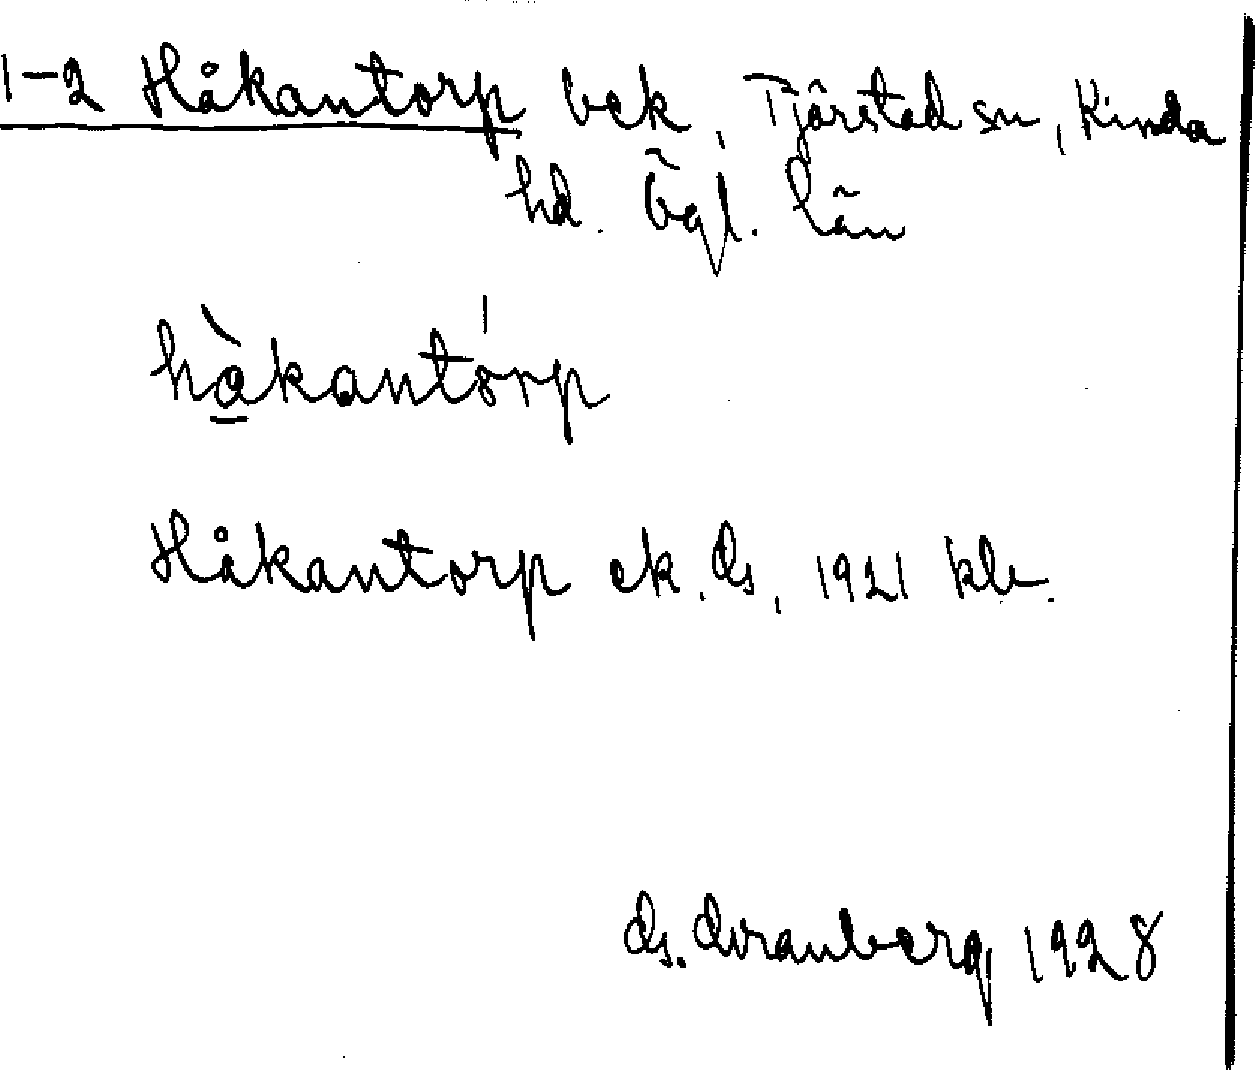 1-2 Håkantorp bek, Tjärstad sn, Kinda
hd. Ögl. län
hà̲kantórp
Håkantorp ek. ds, 1921 kb.
1928